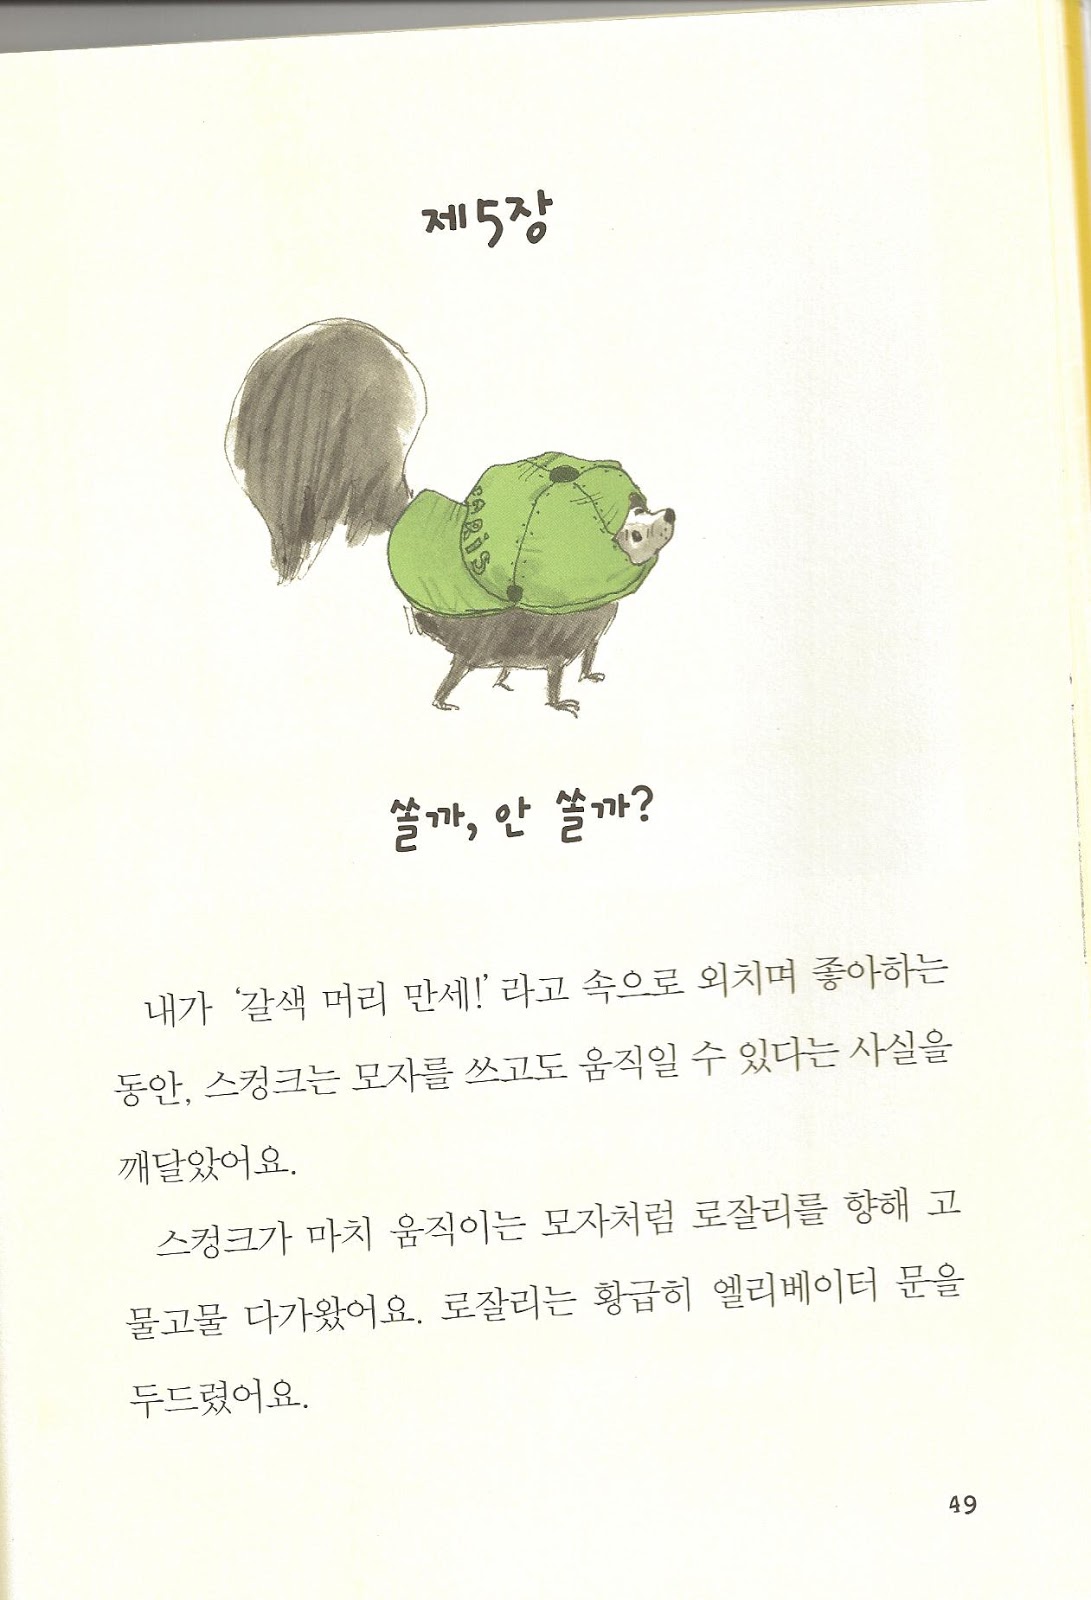 제5장
PARIS
쏠까, 안 쏠까?
내가 ‘갈색 머리 만세!’ 라고 속으로 외치며 좋아하는
동안, 스컹크는 모자를 쓰고도 움직일 수 있다는 사실을
깨달았어요.
스컹크가 마치 움직이는 모자처럼 로잘리를 향해 고
물고물 다가왔어요. 로잘리는 황급히 엘리베이터 문을
두드렸어요.
49